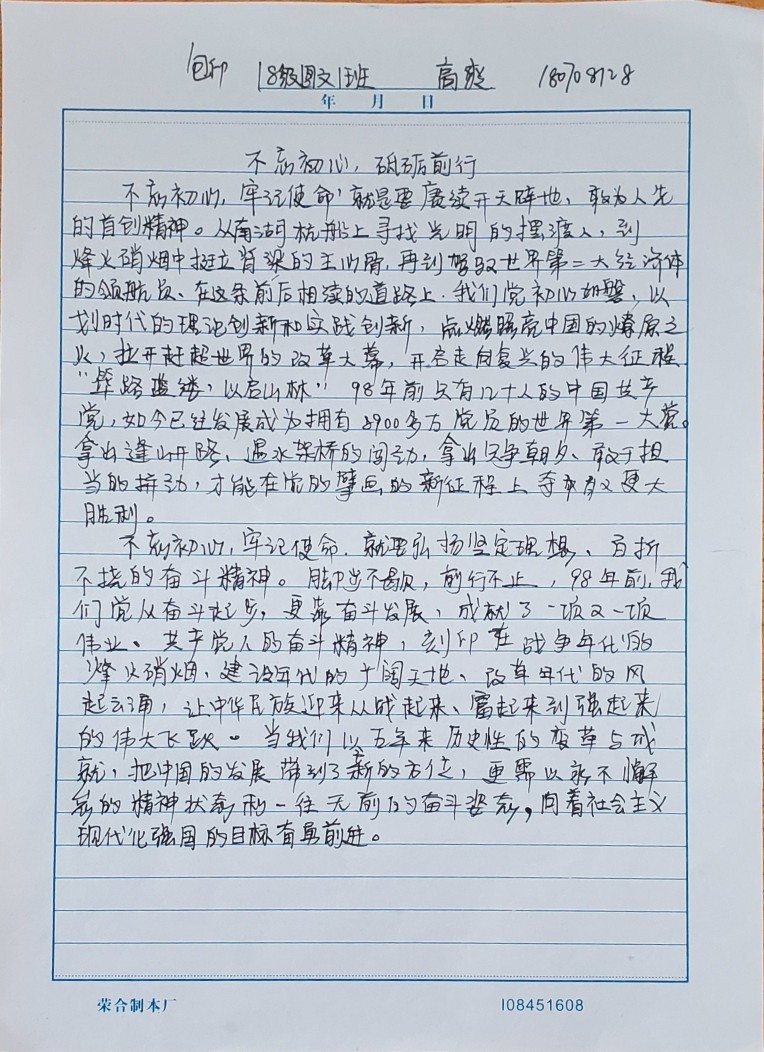 包印 18级图文1班 高爽 180708128
年 月 日
不忘初心，砥砺前行
不忘初心，牢记使命，就是要赓续开天辟地，敢为人先
的首创精神。从南湖航船上寻找光明的摆渡人，到
烽火硝烟中挺立脊梁的主心骨，再到驾驭世界第二大经济体
的领航员、在这条前后相续的道路上，我们党初心如磐，以
划时代的理论创新和实践创新，点燃照亮中国的燎原之
火，拉开赶超世界的改革大幕，开启走向复兴的伟大征程
“筚路蓝缕，以启山林”98年前只有几十人的中国共产
党，如今已经发展成为拥有8900多万党员的世界第一大党。
拿出逢山开路、遇水架桥的闯劲，拿出只争朝夕、敢于担
当的拼劲，才能在党的擘画的新征程上夺取更大
胜利。
不忘初心，牢记使命，就要弘扬坚定理想、百折
不挠的奋斗精神。脚步不歇，前行不止，98年前，我
们党从奋斗起步，更靠奋斗发展，成就了一项又一项
伟业。共产党人的奋斗精神，刻印在战争年代的
烽火硝烟、建设年代的广阔天地、改革年代的风
起云涌，让中华民族迎来从站起来、富起来到强起来
的伟大飞跃。当我们以五年来历史性的变革与成
就，把中国的发展带到了新的方位，更需以永不懈
怠的精神状态和一往无前的奋斗姿态，向着社会主义
现代化强国的目标奋勇前进。
荣合制本厂 108451608